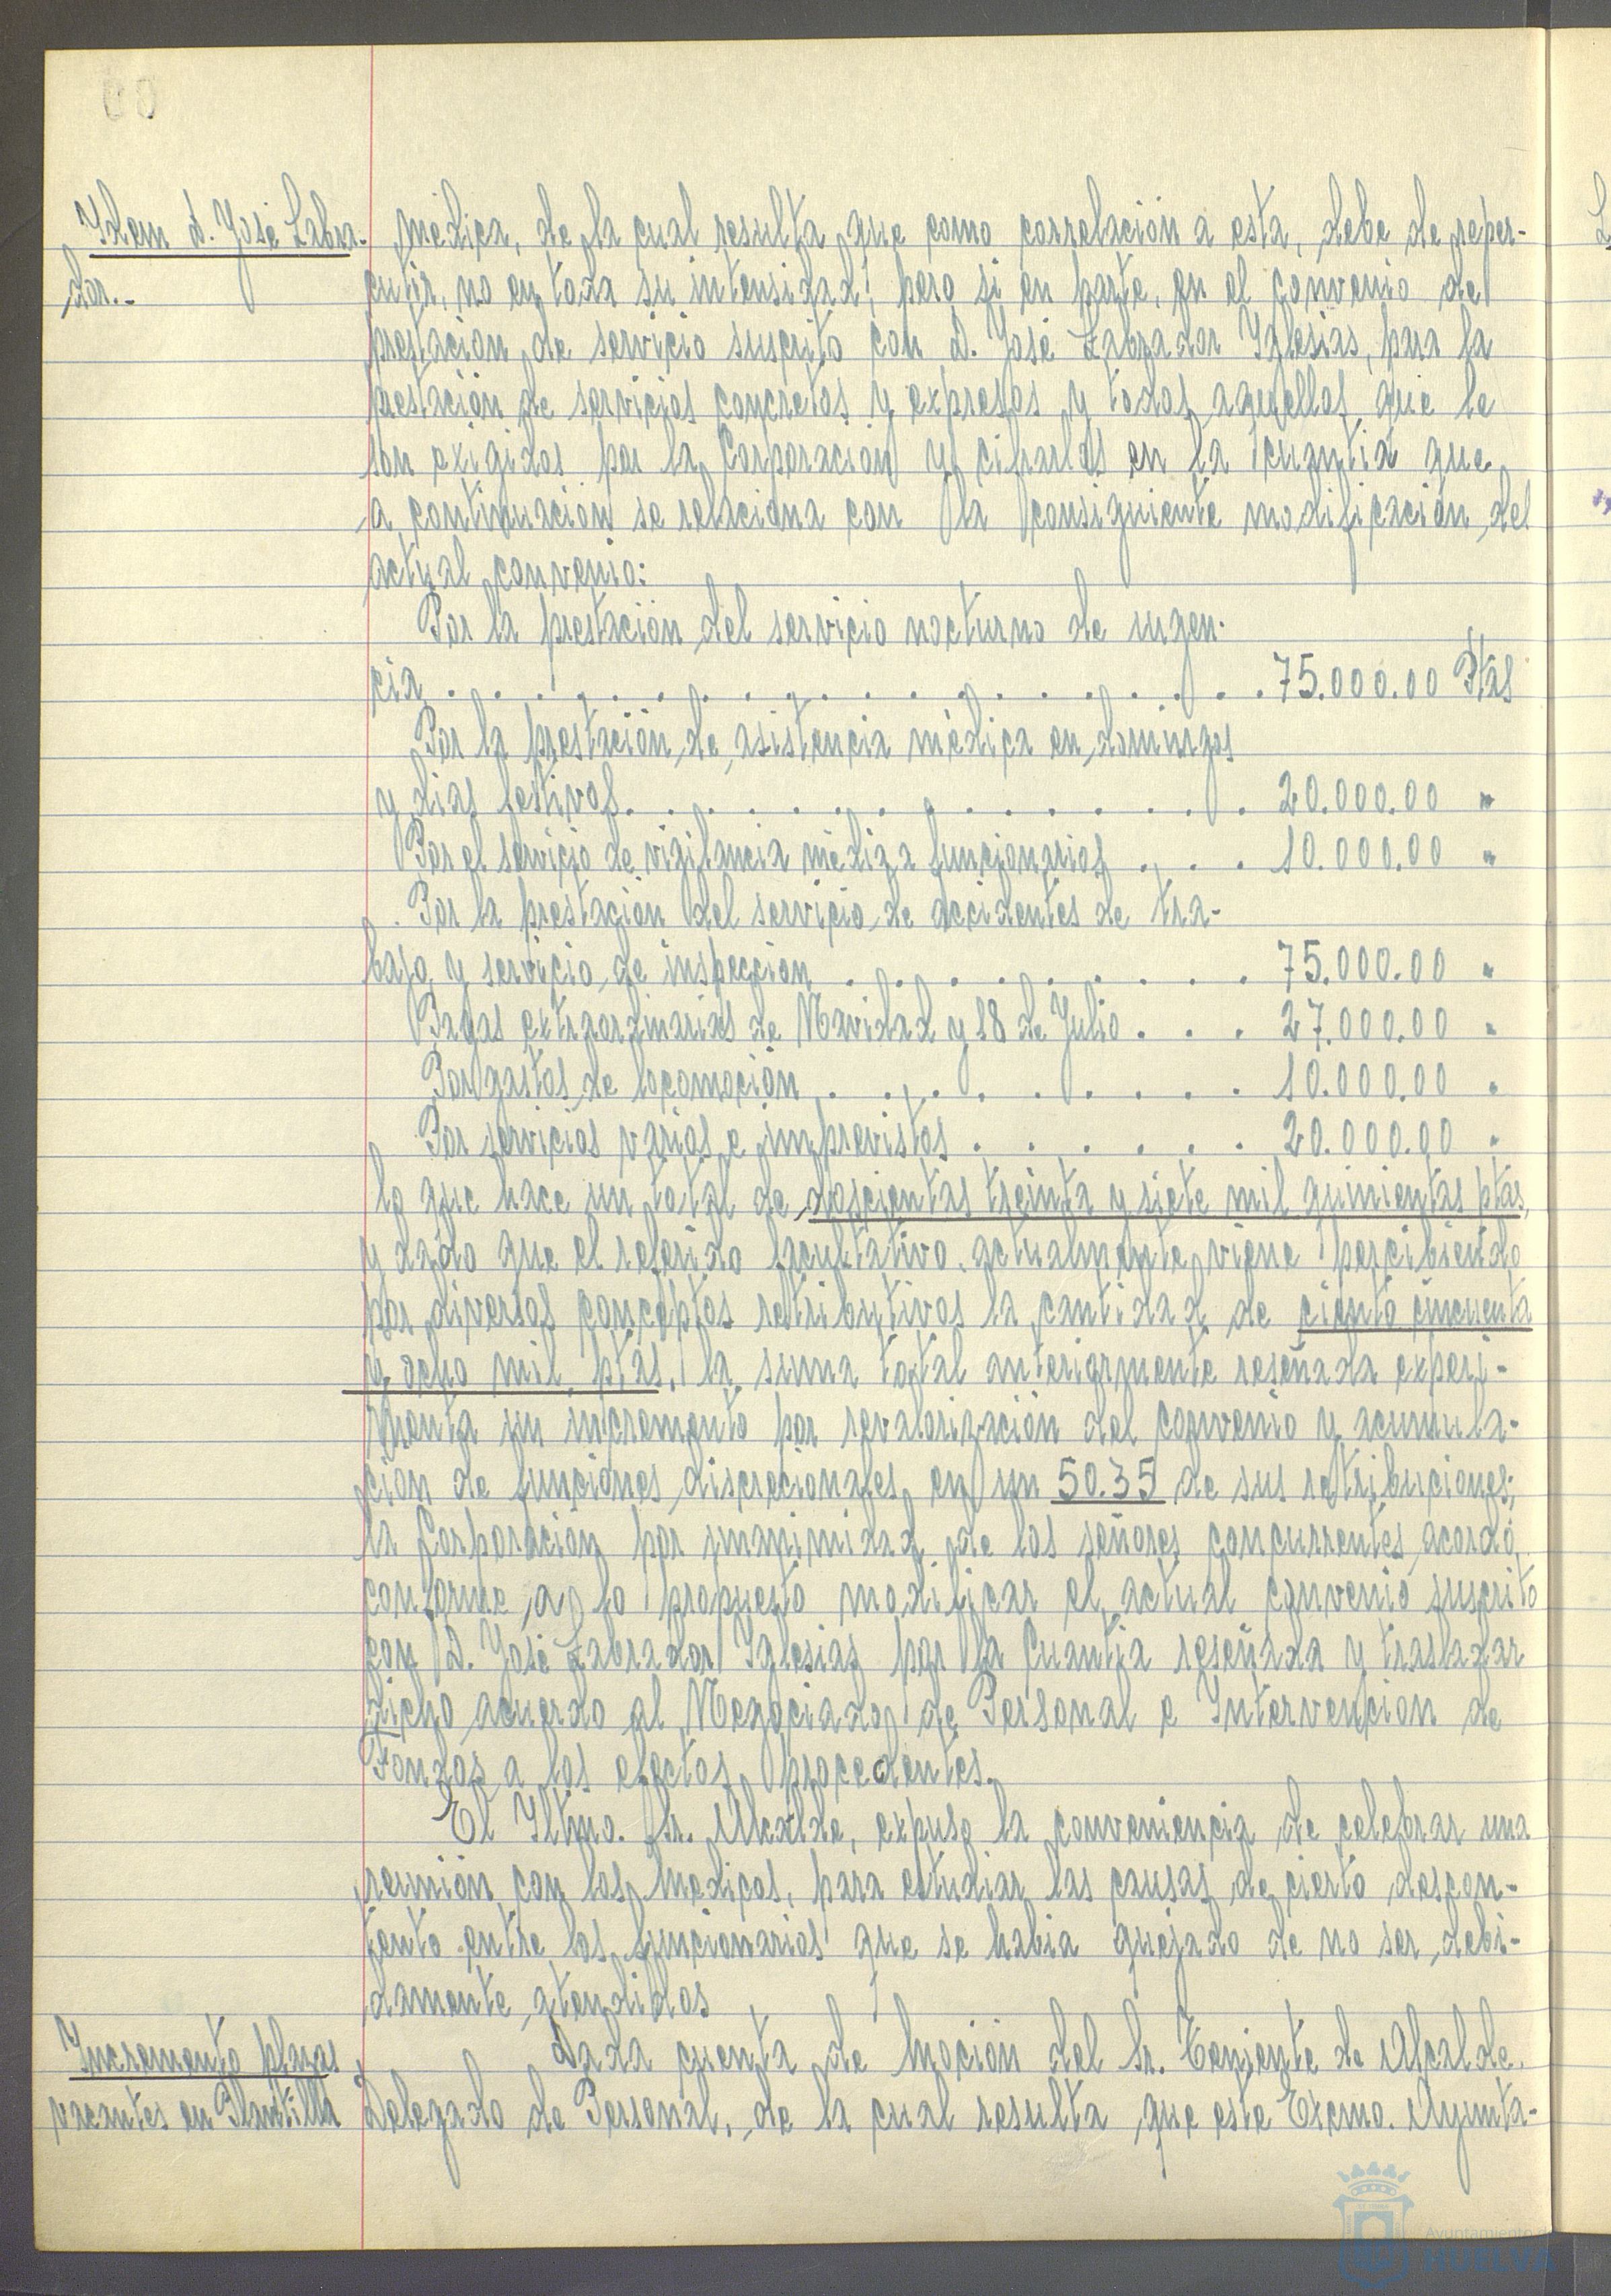 Idem D. José Labra-
dor.-
médica, de la cual resulta que como correlación a esta, debe de reper-
cutir, no en toda su intensidad, pero si en parte, en el convenio de
prestación de servicio suscrito con D. José Labrador Iglesias, para la
prestación de servicios concretos y expresos y todos aquellos que le
son exigidos por la Corporación y cifrarlos en la cuantía que
a continuación se relaciona con la consiguiente modificación del
actual convenio:
Por la prestación del servicio nocturno de urgen-
cia . . . . . . . . . . . . . . . . . 75.000.00 Ptas
Por la prestación de asistencia médica en domingos
y dias festivos. . . . . . . . . . . . . 20.000.00 "
Por el servicio de vigilancia médica a funcionarios . . . 10.000.00 "
Por la prestación del servicio de accidentes de tra-
bajo y servicio de inspección . . . . . . . . . 75.000.00 "
Pagas extraordinarias de Navidad y 18 de Julio . . . 27.000.00 "
Por gastos de locomoción . . . . . . . . . 10.000.00 "
Por servicios varios e imprevistos . . . . . . 20.000.00 "
lo que hace un total de doscientas treinta y siete mil quinientas ptas,
y dado que el referido facultativo actualmente viene percibiendo
por diversos conceptos retributivos la cantidad de ciento cincuenta
y ocho mil ptas, la suma total anteriormente reseñada experi-
menta un incremento por revalorización del convenio y acumula-
ción de funciones discrecionales en un 50.35 de sus retribuciones;
la Corporación por unanimidad de los señores concurrentes acordó,
conforme a lo propuesto modificar el actual convenio suscrito
con D. José Labrador Iglesias por la Cuantía reseñada y trasladar
dicho acuerdo al Negociado de Personal e Intervención de
Fondos a los efectos procedentes.
El Iltmo. Sr. Alcalde, expuso la conveniencia de celebrar una
reunión con los médicos, para estudiar las causas de cierto descon-
tento entre los funcionarios que se había quejado de no ser debi-
damente atendidos
Incremento plazas
vacantes en Plantilla
Dada cuenta de moción del Sr. Teniente de Alcalde
Delegado de Personal, de la cual resulta que este Excmo. Ayunta-
Ayuntamiento de
HUELVA